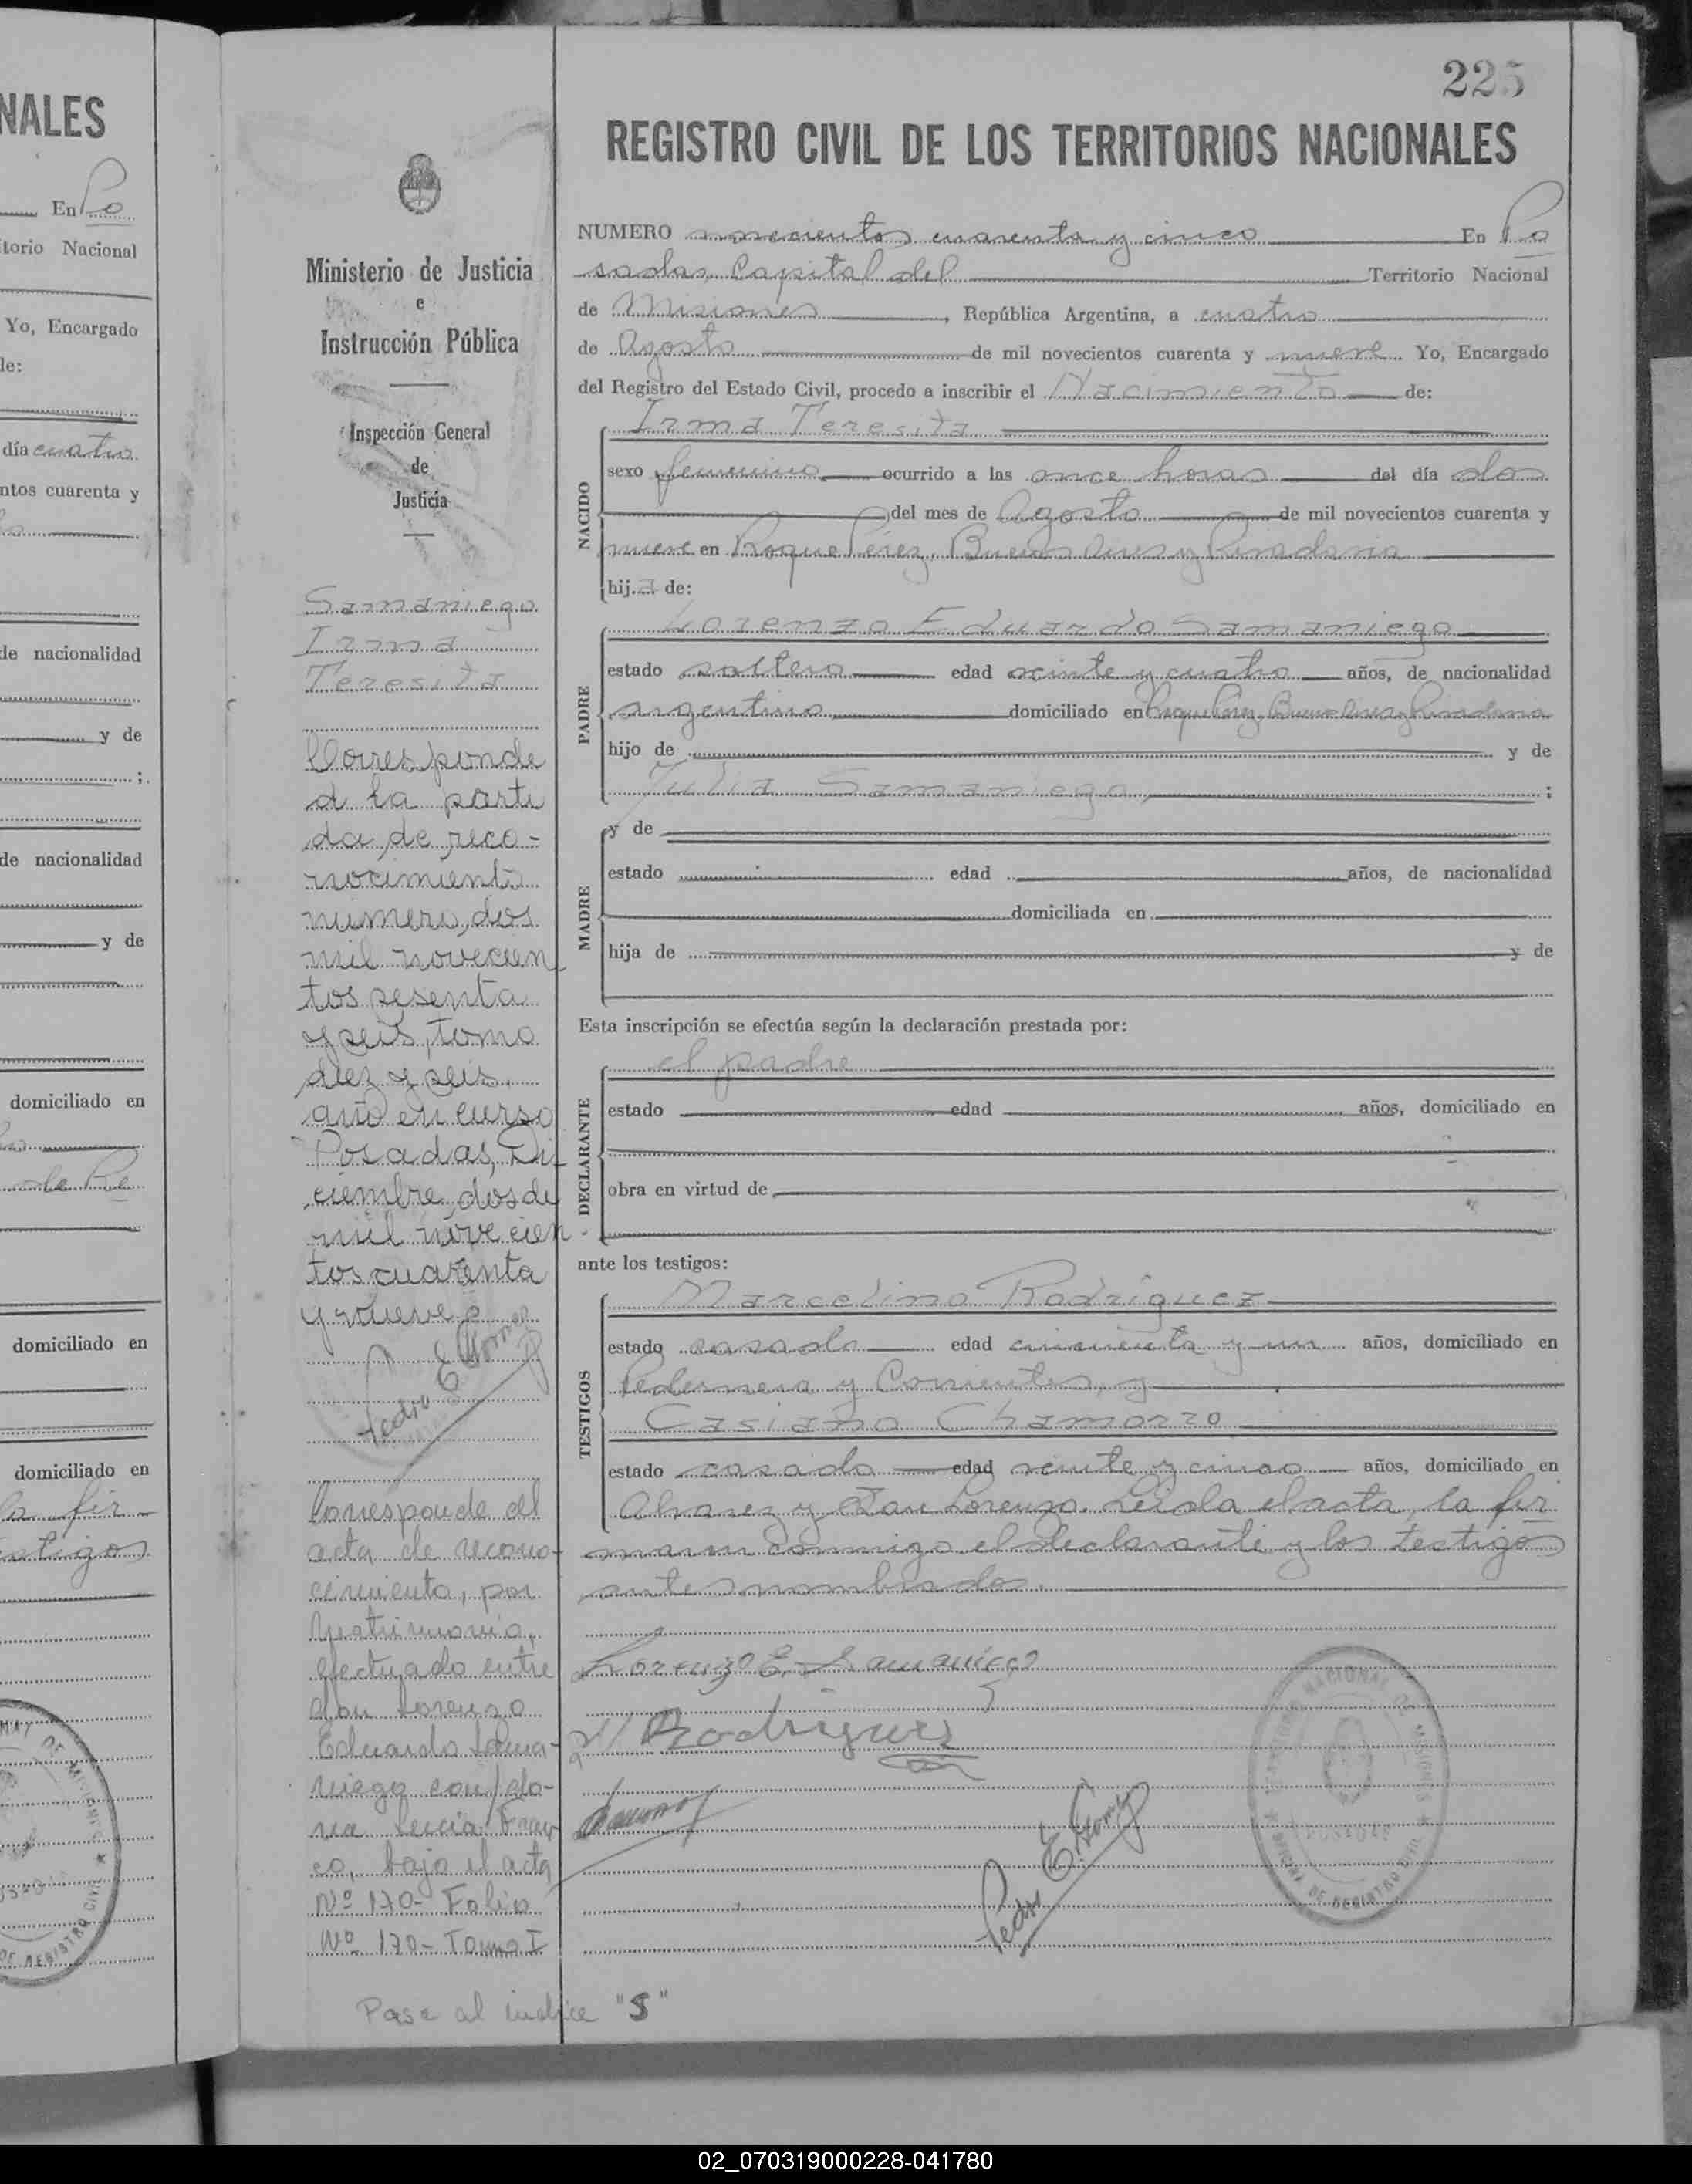 NALES
En Po
torio Nacional
Yo, Encargado
le:
día cuatro
ntos cuarenta y
de nacionalidad
y de
;
de nacionalidad
y de
domiciliado en
de Re
domiciliado en
domiciliado en
la fir-
estigos
225
REGISTRO CIVIL DE LOS TERRITORIOS NACIONALES
Ministerio de Justicia
e
Instrucción Pública
Inspección General
de
Justicia
Samaniego
Irma
Teresita
Corresponde
a la parti
da de reco-
nocimiento
número, dos
mil novecien
tos sesenta
y seis, tomo
diez y seis.
año en curso
Posadas, Di
ciembre, dos de
mil novecien-
tos cuarenta
y nueve
Pedro E Gomez
Corresponde al
acta de recono-
cimiento, por
Matrimonio,
efectuado entre
don Lorenzo
Eduardo Sama-
niego con do-
ña Lucia Fran
co, bajo el acta
Nº 170- Folio
Nº 170- Tomo I
Pase al indice "S"
NUMERO novecientos cuarenta y cinco En Po
sadas, Capital del Territorio Nacional
de Misiones, República Argentina, a cuatro
de Agosto de mil novecientos cuarenta y nueve Yo, Encargado
del Registro del Estado Civil, procedo a inscribir el Nacimiento de:
NACIDO
Irma Teresita
sexo femenino ocurrido a las once horas del día dos
del mes de Agosto de mil novecientos cuarenta y
nueve en Roque Pérez, Buenos Aires y Rivadavia
hija de:
PADRE
Lorenzo Eduardo Samaniego
estado soltero edad veinte y cuatro años, de nacionalidad
argentino domiciliado en Roque Pérez, Buenos Aires y Rivadavia
hijo de y de
Julia Samaniego, ;
MADRE
y de
estado edad años, de nacionalidad
domiciliada en
hija de y de
Esta inscripción se efectúa según la declaración prestada por:
DECLARANTE
el padre
estado edad años, domiciliado en
obra en virtud de
ante los testigos:
TESTIGOS
Marcelino Rodríguez
estado casado edad cincuenta y un años, domiciliado en
Pedernera y Corrientes, y
Casiano Chamorro
estado casado edad veinte y cinco años, domiciliado en
Alvarez y San Lorenzo. Leida el acta, la fir
maron conmigo el declarante y los testigos
antes nombrados.
Lorenzo E. Samaniego
M Rodriguez
Pedro E. Gomez
NACIONAL DE MISIONES
POSADAS
OFICINA DE REGISTRO CIVIL
02_070319000228-041780